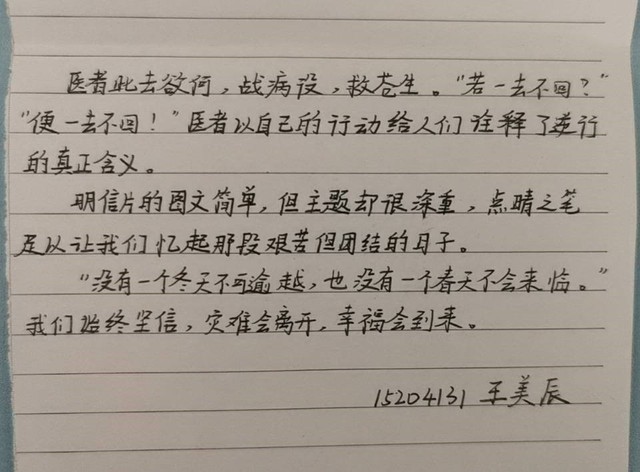 医者此去欲何，战病设，救苍生。“若一去不回？”
“便一去不回！”医者以自己的行动给人们诠释了逆行
的真正含义。
明信片的图文简单，但主题却很深重，点睛之笔
足以让我们忆起那段艰苦但团结的日子。
“没有一个冬天不可逾越，也没有一个春天不会来临。”
我们始终坚信，灾难会离开，幸福会到来。
15204131 王美辰